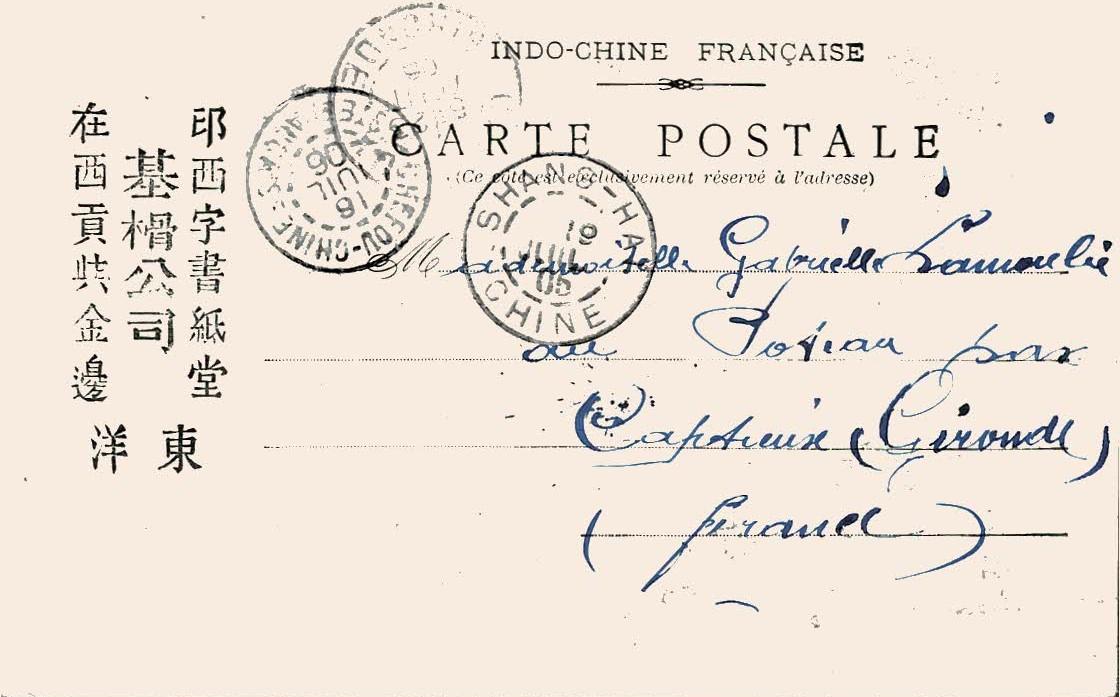 INDO-CHINE FRANÇAISE
CARTE POSTALE
(Ce côté est exclusivement réservé à l'adresse)
印西字書紙堂
基榾公司
在西貢共金邊
東洋
CHEFOU-CHINE
16
JUIL
SHANG-HAI
19
JUIL
05
CHINE
Mademoiselle Gabrielle Lamoulie
au Poteau par
Captieux (Gironde)
(France)